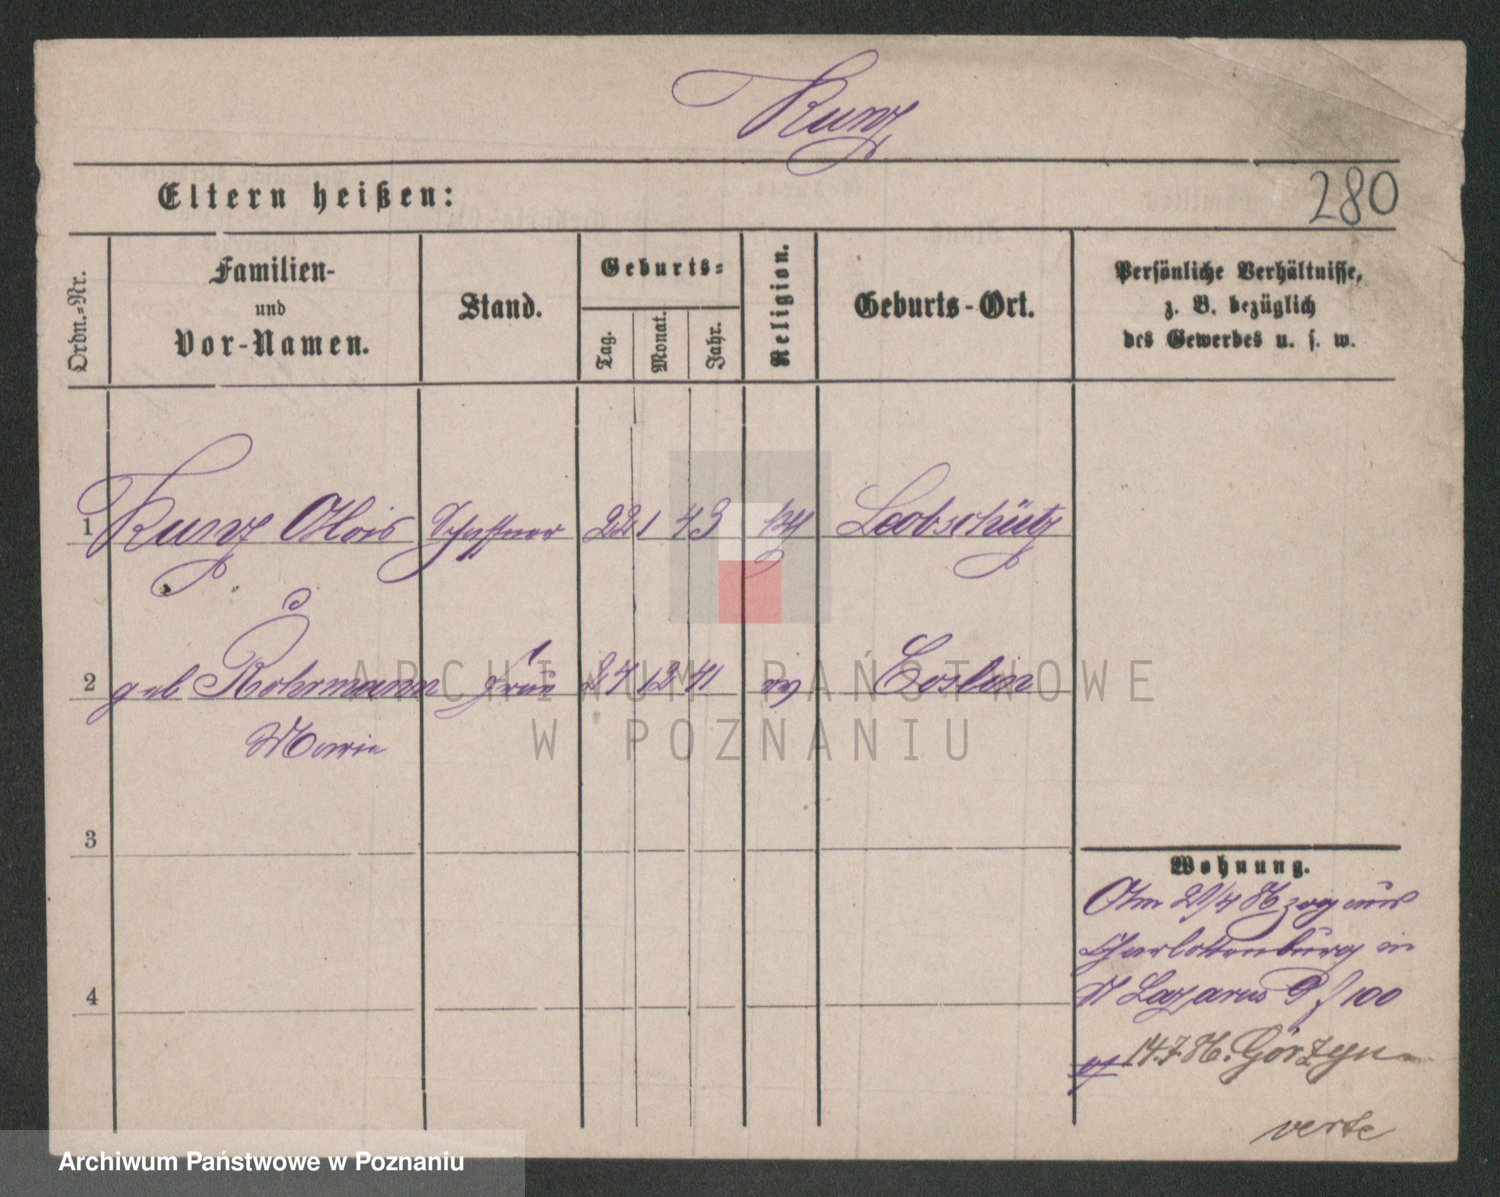 Kunz
Eltern heißen:
280
Ordn.-Nr.
Familien-
und
Vor-Namen.
Stand.
Geburts-
Tag.
Monat.
Jahr.
Religion.
Geburts-Ort.
Persönliche Verhältnisse,
z. B. bezüglich
des Gewerbes u. s. w.
1 Kunz Alois Schaffner 22 1 43 kth Leobschütz
2 geb Rohrmann Frau 27 12 41 ev Coslin
Marie
3
4
Wohnung.
Am 29/4 86 zog aus
Charlottenburg in
St Lazarus 100
14.7.86. Görtzyn
verte
ARCHIWUM PAŃSTWOWE
W POZNANIU
Archiwum Państwowe w Poznaniu